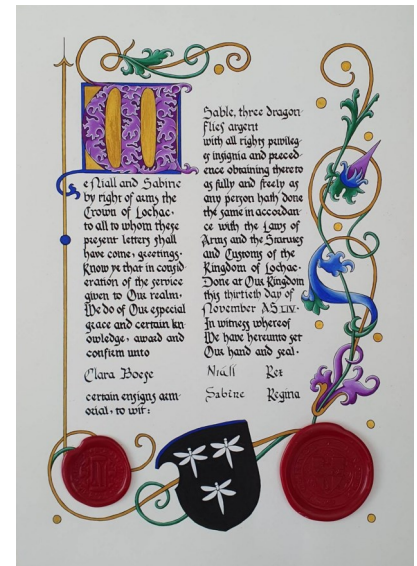 We Niall and Sabine
by right of arms the
Crown of Lochac.
to all to whom these
present letters shall
have come, greetings.
Know ye that in consid
eration of the service
given to Our realm.
We do of Our especial
grace and certain kn
owledge, award and
confirm unto
Clara Boese
certain ensigns arm
orial, to wit:
Sable, three dragon
flies argent
with all rights privileg
es insignia and preced
ence obtaining thereto
as fully and freely as
any person hath done
the same in accordan
ce with the Laws of
Arms and the Statutes
and Customs of the
Kingdom of Lochac.
Done at Our Kingdom
this thirtieth day of
November AS LIV.
In witness whereof
We have hereunto set
Our hand and seal.
Niall Rex
Sabine Regina